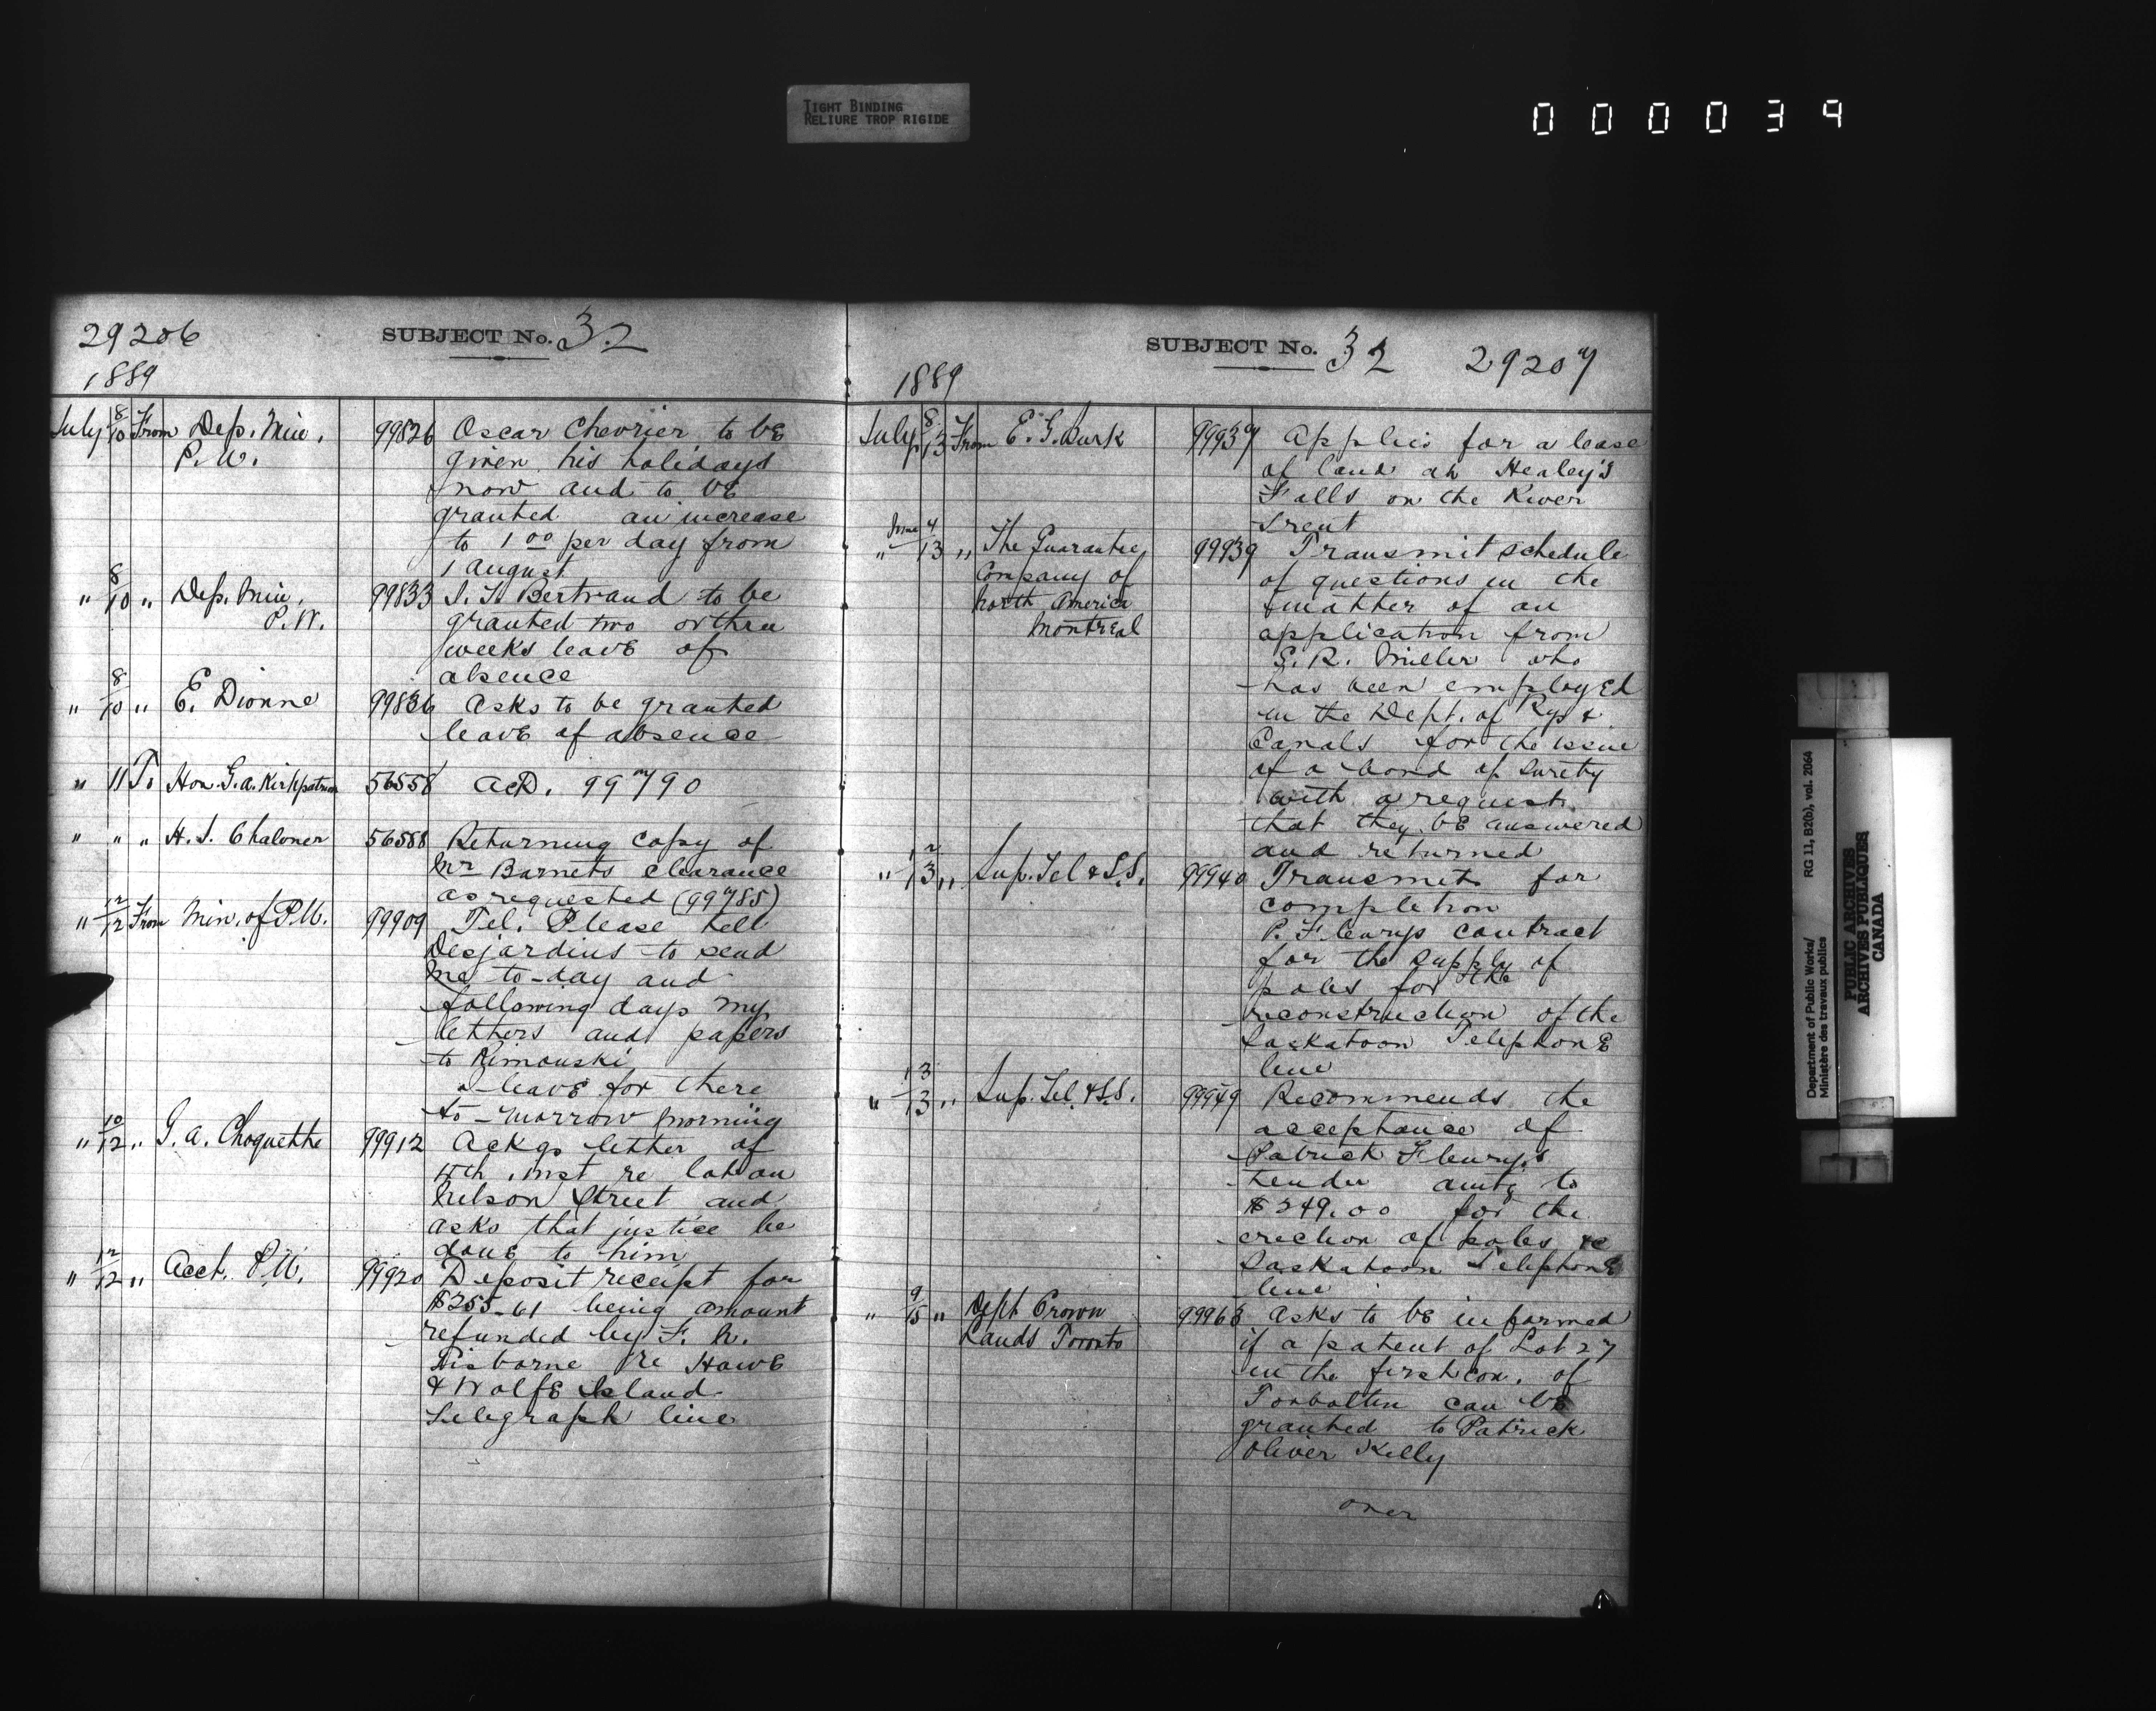 TIGHT BINDING
RELIURE TROP RIGIDE
000039
29206
SUBJECT No. 32
1889
July 8/10 From Dep. Min. 99826 Oscar Chevrier to be
P. W. given his holidays
now and to be
granted an increase
to 1 00 per day from
1 August
" 8/10 " Dep. Min. 99833 Bertrand to be
P. W. granted two or three
weeks leave of
absence
" 8/10 " E. Dionne 99836 Asks to be granted
leave of absence
" 11 To Hon. G. A. Kirkpatrick 56558 Ack. 99790
" " " H. S. Chaloner 56588 Returning copy of
Mr Barnets clearance
as requested (99785)
" 12/12 From Min. of P. W. 99909 Tel. Please tell
Desjardins to send
me to-day and
following days my
letters and papers
to Rimouski
I leave for there
to-morrow morning
" 10/12 " Choquette 99912 Ackgs letter of
inst re lot on
Nelson Street and
asks that justice be
done to him
" 12/12 " Acct. P. W. 99920 Deposit receipt for
$255.61 being amount
refunded by F. N.
Gisborne re Howe
& Wolfe Island
Telegraph line
SUBJECT No. 32 29207
1889
July 8/13 From E. G. Burk 99937 Applies for a lease
of land at Healey's
Falls on the River
Trent
" June 4/13 " The Guarantee 99939 Transmit schedule
Company of of questions in the
North America matter of an
Montreal application from
R. Miller who
has been employed
in the Dept. of Rys &
Canals for the issue
of a bond of surety
with a request
that they be answered
and returned
" 12/13 " Sup. Tel & S.S. 99940 Transmits for
completion
P. Fleurys contract
for the supply of
poles for the
reconstruction of the
Saskatoon Telephone
line
" 13/13 " Sup. Tel. & S.S. 99949 Recommends the
acceptance of
Patrick Fleury's
tender amtg to
$249.00 for the
erection of poles re
Saskatoon Telephone
line
" 9/15 " Dept Crown 99963 Asks to be informed
Lands Toronto if a patent of Lot 27
in the first con. of
Torbolton can be
granted to Patrick
Oliver Kelly
over
Department of Public Works/
Ministère des travaux publics
RG 11, B2(b), vol. 2064
PUBLIC ARCHIVES
ARCHIVES PUBLIQUES
CANADA